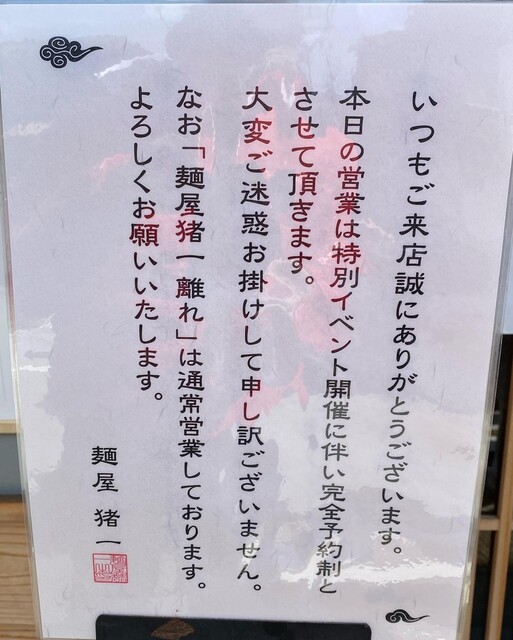 いつもご来店誠にありがとうございます。
本日の営業は特別イベント開催に伴い完全予約制と
させて頂きます。
大変ご迷惑お掛けして申し訳ございません。
なお「麺屋猪一離れ」は通常営業しております。
よろしくお願いいたします。
麺屋 猪一